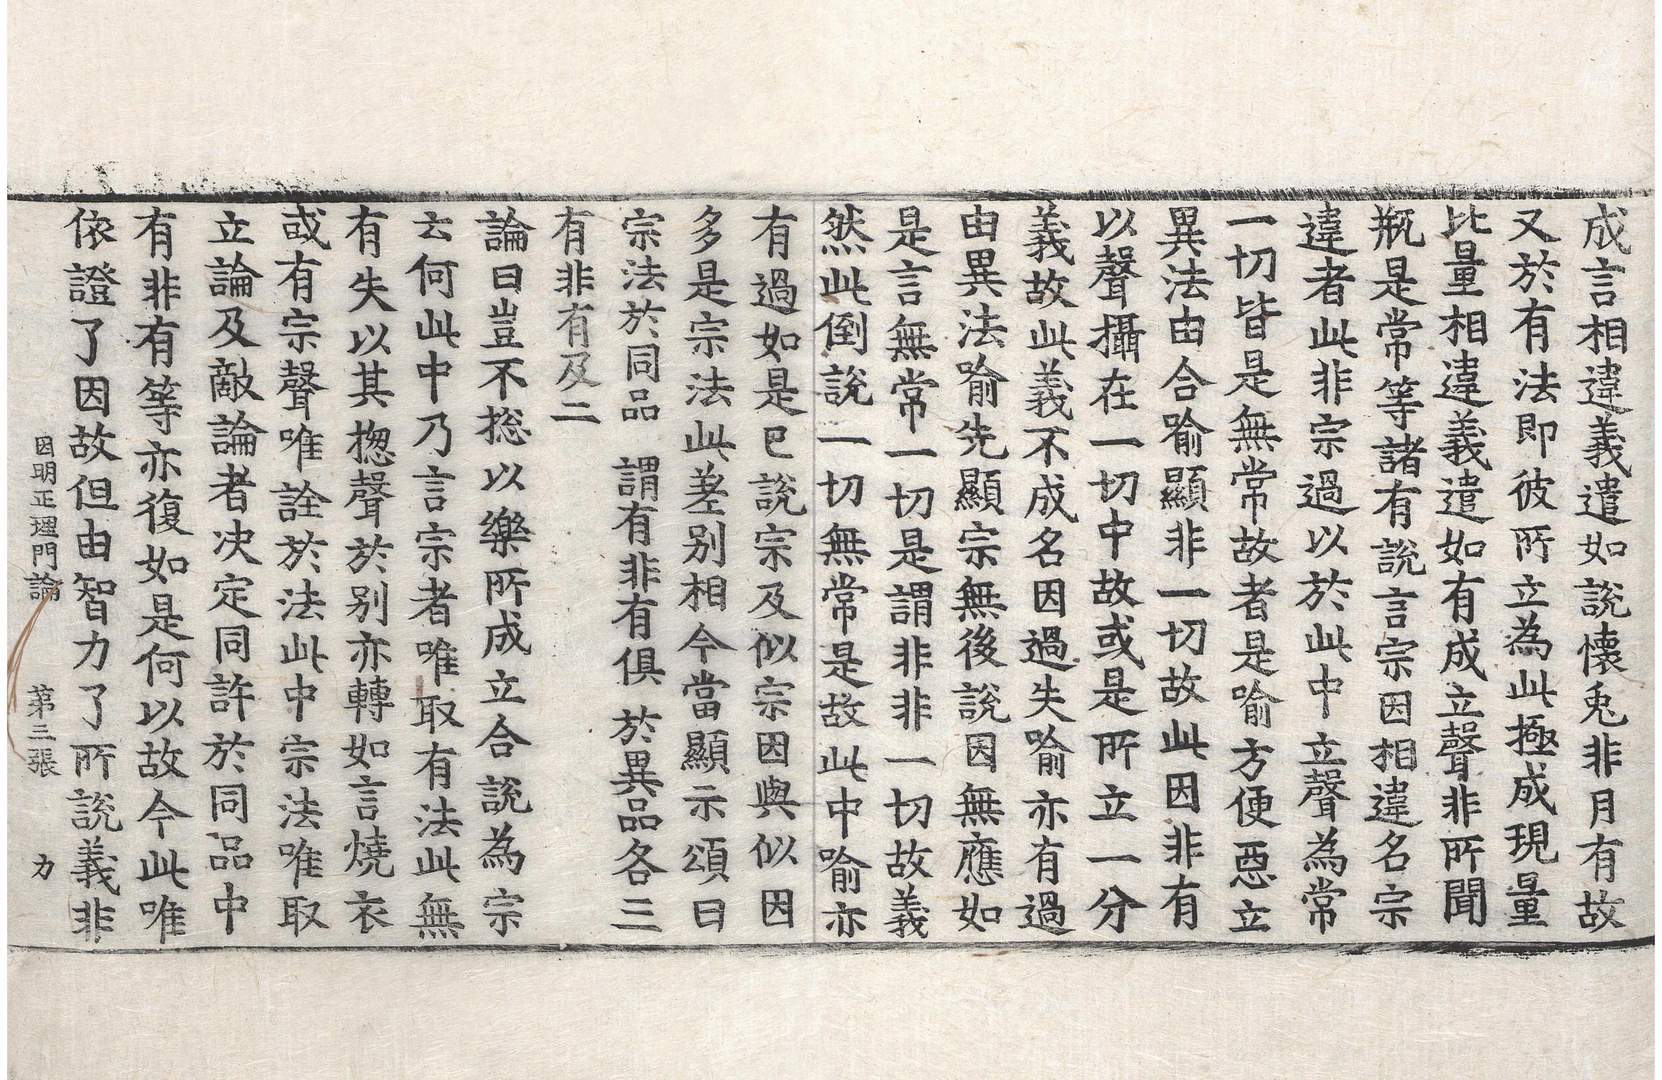 成言相違義遣如說懷兎非月有故
又於有法即彼所立為此極成現量
比量相違義遣如有成立聲非所聞
瓶是常等諸有說言宗因相違名宗
違者此非宗過以於此中立聲為常
一切皆是無常故者是喻方便惡立
異法由合喻顯非一切故此因非有
以聲攝在一切中故或是所立一分
義故此義不成名因過失喻亦有過
由異法喻先顯宗無後說因無應如
是言無常一切是謂非非一切故義
然此倒說一切無常是故此中喻亦
有過如是已說宗及似宗因與似因
多是宗法此差別相今當顯示頌曰
宗法於同品　謂有非有俱　於異品各三
有非有及二
論曰豈不捴以樂所成立合說為宗
云何此中乃言宗者唯取有法此無
有失以其揔聲於別亦轉如言燒衣
或有宗聲唯詮於法此中宗法唯取
立論及敵論者决定同許於同品中
有非有等亦復如是何以故今此唯
依證了因故但由智力了所說義非
因明正理門論　第三張　力